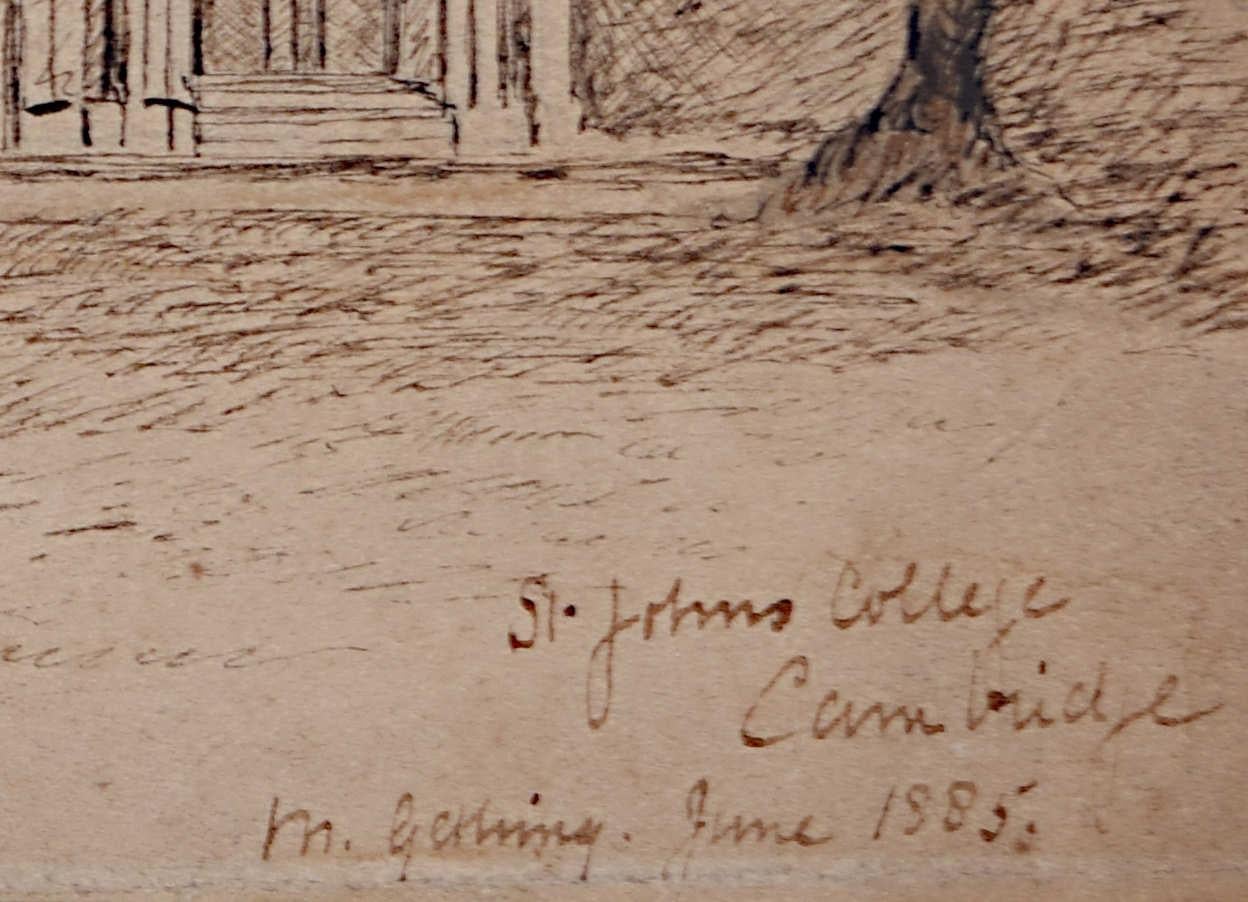 St. Johns College
Cambridge
M. Gething. June 1885.